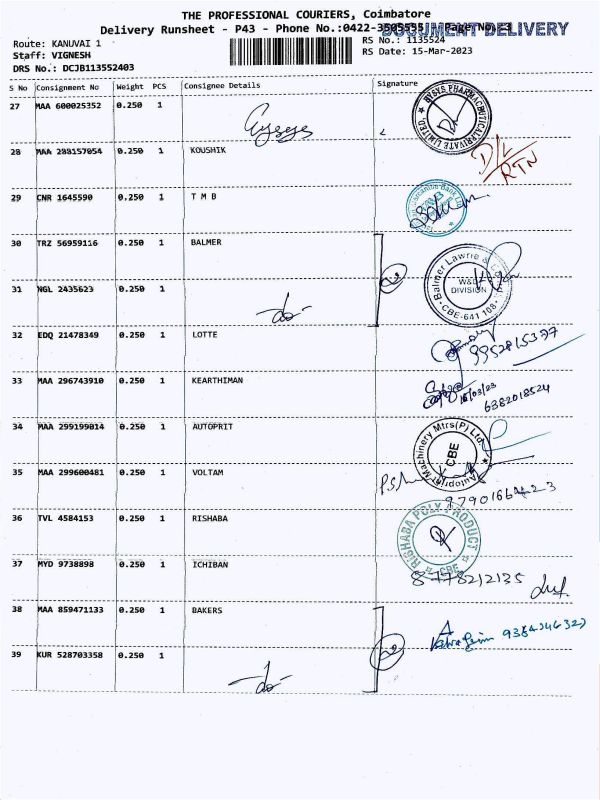 THE PROFESSIONAL COURIERS, Coimbatore
Delivery Runsheet - P43 - Phone No.:0422-3505555 Page No. 3
DOCUMENT DELIVERY
Route: KANUVAI 1
RS No.: 1135524
Staff: VIGNESH
RS Date: 15-Mar-2023
DRS No.: DCJB113552403
S No Consignment No Weight PCS Consignee Details Signature
27 MAA 600025352 0.250 1
PHARMACEUTICAL PRIVATE LIMITED
28 MAA 288157054 0.250 1 KOUSHIK
D/L
RTN
29 CNR 1645590 0.250 1 T M B
30 TRZ 56959116 0.250 1 BALMER
31 NGL 2435623 0.250 1
-do-
2
Balmer Lawrie & Co.
W&L
DIVISION
CBE-641 108
32 EDQ 21478349 0.250 1 LOTTE
9952815377
33 MAA 296743910 0.250 1 KEARTHIMAN
16/03/23
6382018524
34 MAA 299199014 0.250 1 AUTOPRIT
Autoprint Machinery Mtrs(P) Ltd.
CBE
35 MAA 299600481 0.250 1 VOLTAM
36 TVL 4584153 0.250 1 RISHABA
RISHABA POLY PRODUCT
CBE
37 MYD 9738898 0.250 1 ICHIBAN
8778212135
38 MAA 859471133 0.250 1 BAKERS
39 KUR 528703358 0.250 1
-do-
2